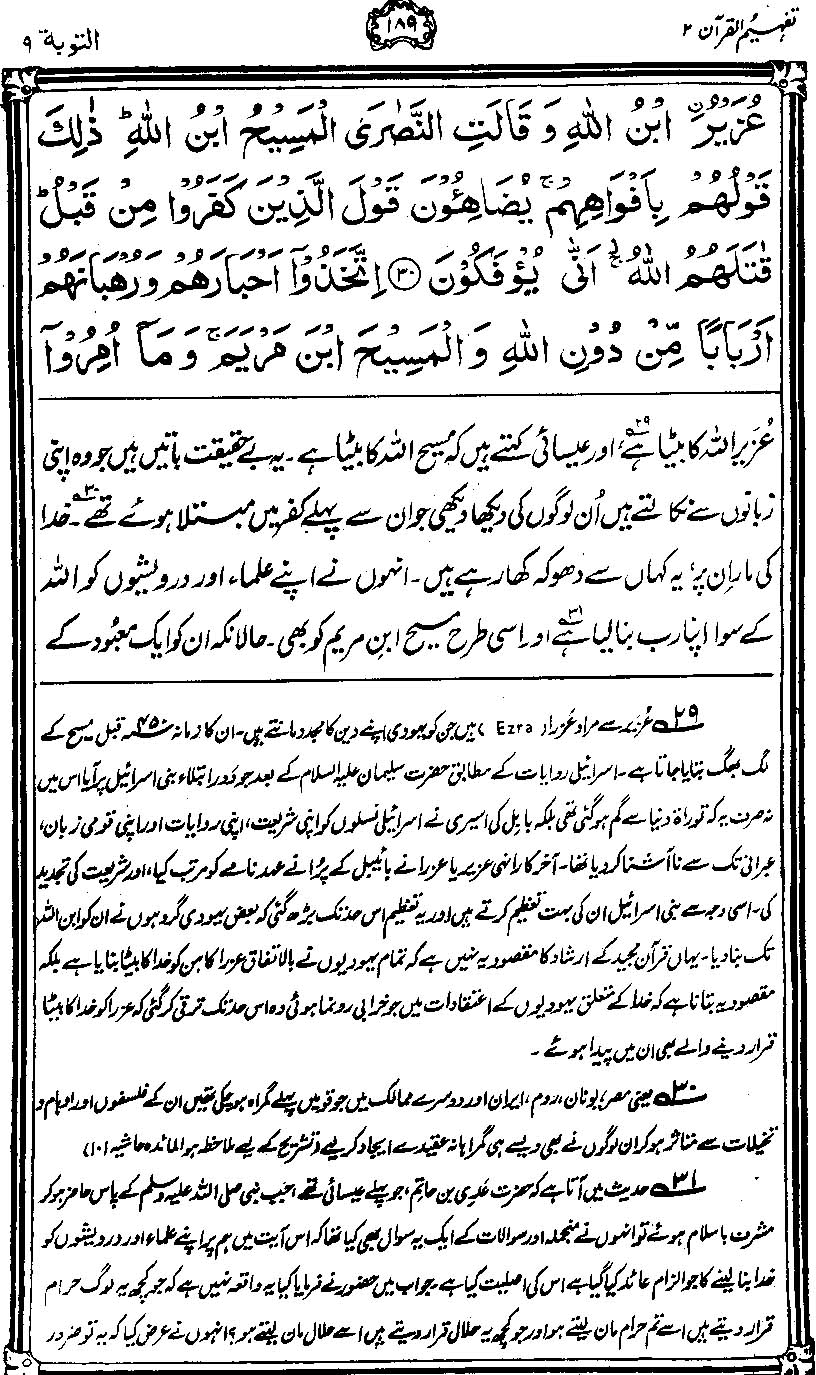 تفہیم القرآن ۲
۱۸۹
التوبة ۹
عُزَيْرُ ۨ ابْنُ اللّٰهِ وَ قَالَتِ النَّصٰرَى الْمَسِيْحُ ابْنُ اللّٰهِ ؕ ذٰلِكَ
قَوْلُهُمْ بِاَفْوَاهِهِمْ ۚ يُضَاهِـُٔوْنَ قَوْلَ الَّذِيْنَ كَفَرُوْا مِنْ قَبْلُ ؕ
قٰتَلَهُمُ اللّٰهُ ۚ اَنّٰى يُؤْفَكُوْنَ ﴿۳۰﴾ اِتَّخَذُوْۤا اَحْبَارَهُمْ وَرُهْبَانَهُمْ
اَرْبَابًا مِّنْ دُوْنِ اللّٰهِ وَ الْمَسِيْحَ ابْنَ مَرْيَمَ ۚ وَ مَاۤ اُمِرُوْۤا
عُزیر اللہ کا بیٹا ہے۲۹، اور عیسائی کہتے ہیں کہ مسیح اللہ کا بیٹا ہے۔ یہ بے حقیقت باتیں ہیں جو وہ اپنی
زبانوں سے نکالتے ہیں اُن لوگوں کی دیکھا دیکھی جو ان سے پہلے کفر میں مبتلا ہوئے تھے۳۰۔ خدا
کی مار اِن پر، یہ کہاں سے دھوکہ کھا رہے ہیں۔ انہوں نے اپنے علماء اور درویشوں کو اللہ
کے سوا اپنا رب بنا لیا ہے۳۱ اور اسی طرح مسیح ابنِ مریم کو بھی۔ حالانکہ ان کو ایک معبود کے
۲۹ عُزیر سے مراد عَزرا (Ezra) ہیں جن کو یہودی اپنے دین کا مجدد مانتے ہیں۔ ان کا زمانہ ۴۵۰ قبل مسیح کے
لگ بھگ بتایا جاتا ہے۔ اسرائیلی روایات کے مطابق حضرت سلیمان علیہ السلام کے بعد جو دَورِ ابتلاء بنی اسرائیل پر آیا اس میں
نہ صرف یہ کہ توراۃ دنیا سے گم ہو گئی تھی بلکہ بابل کی اسیری نے اسرائیلی نسلوں کو اپنی شریعت، اپنی روایات اور اپنی قومی زبان،
عبرانی تک سے ناآشنا کر دیا تھا۔ آخر کار انہی عزیر یا عزرا نے بائیبل کے پرانے عہد نامے کو مرتب کیا، اور شریعت کی تجدید
کی۔ اسی وجہ سے بنی اسرائیل ان کی بہت تعظیم کرتے ہیں اور یہ تعظیم اس حد تک بڑھ گئی کہ بعض یہودی گروہوں نے ان کو ابن اللہ
تک بنا دیا۔ یہاں قرآن مجید کے ارشاد کا مقصود یہ نہیں ہے کہ تمام یہودیوں نے بالاتفاق عزرا کاہن کو خدا کا بیٹا بنایا ہے بلکہ
مقصود یہ بتانا ہے کہ خدا کے متعلق یہودیوں کے اعتقادات میں جو خرابی رونما ہوئی وہ اس حد تک ترقی کر گئی کہ عزرا کو خدا کا بیٹا
قرار دینے والے بھی ان میں پیدا ہوئے۔
۳۰ یعنی مصر، یونان، روم، ایران اور دوسرے ممالک میں جو قومیں پہلے گمراہ ہو چکی تھیں ان کے فلسفوں اور اوہام و
تخیلات سے متاثر ہو کر ان لوگوں نے بھی ویسے ہی گمراہانہ عقیدے ایجاد کر لیے (تشریح کے لیے ملاحظہ ہو المائدہ حاشیہ ۱۰۱)
۳۱ حدیث میں آتا ہے کہ حضرت عَدِی بن حاتِم، جو پہلے عیسائی تھے، جب نبی صلی اللہ علیہ وسلم کے پاس حاضر ہو کر
مشرف باسلام ہوئے تو انہوں نے منجملہ اور سوالات کے ایک یہ سوال بھی کیا تھا کہ اس آیت میں ہم پر اپنے علماء اور درویشوں کو
خدا بنا لینے کا جو الزام عائد کیا گیا ہے اس کی اصلیت کیا ہے۔ جواب میں حضور نے فرمایا کیا یہ واقعہ نہیں ہے کہ جو کچھ یہ لوگ حرام
قرار دیتے ہیں اسے تم حرام مان لیتے ہو اور جو کچھ یہ حلال قرار دیتے ہیں اسے حلال مان لیتے ہو؟ انہوں نے عرض کیا کہ یہ تو ضرور